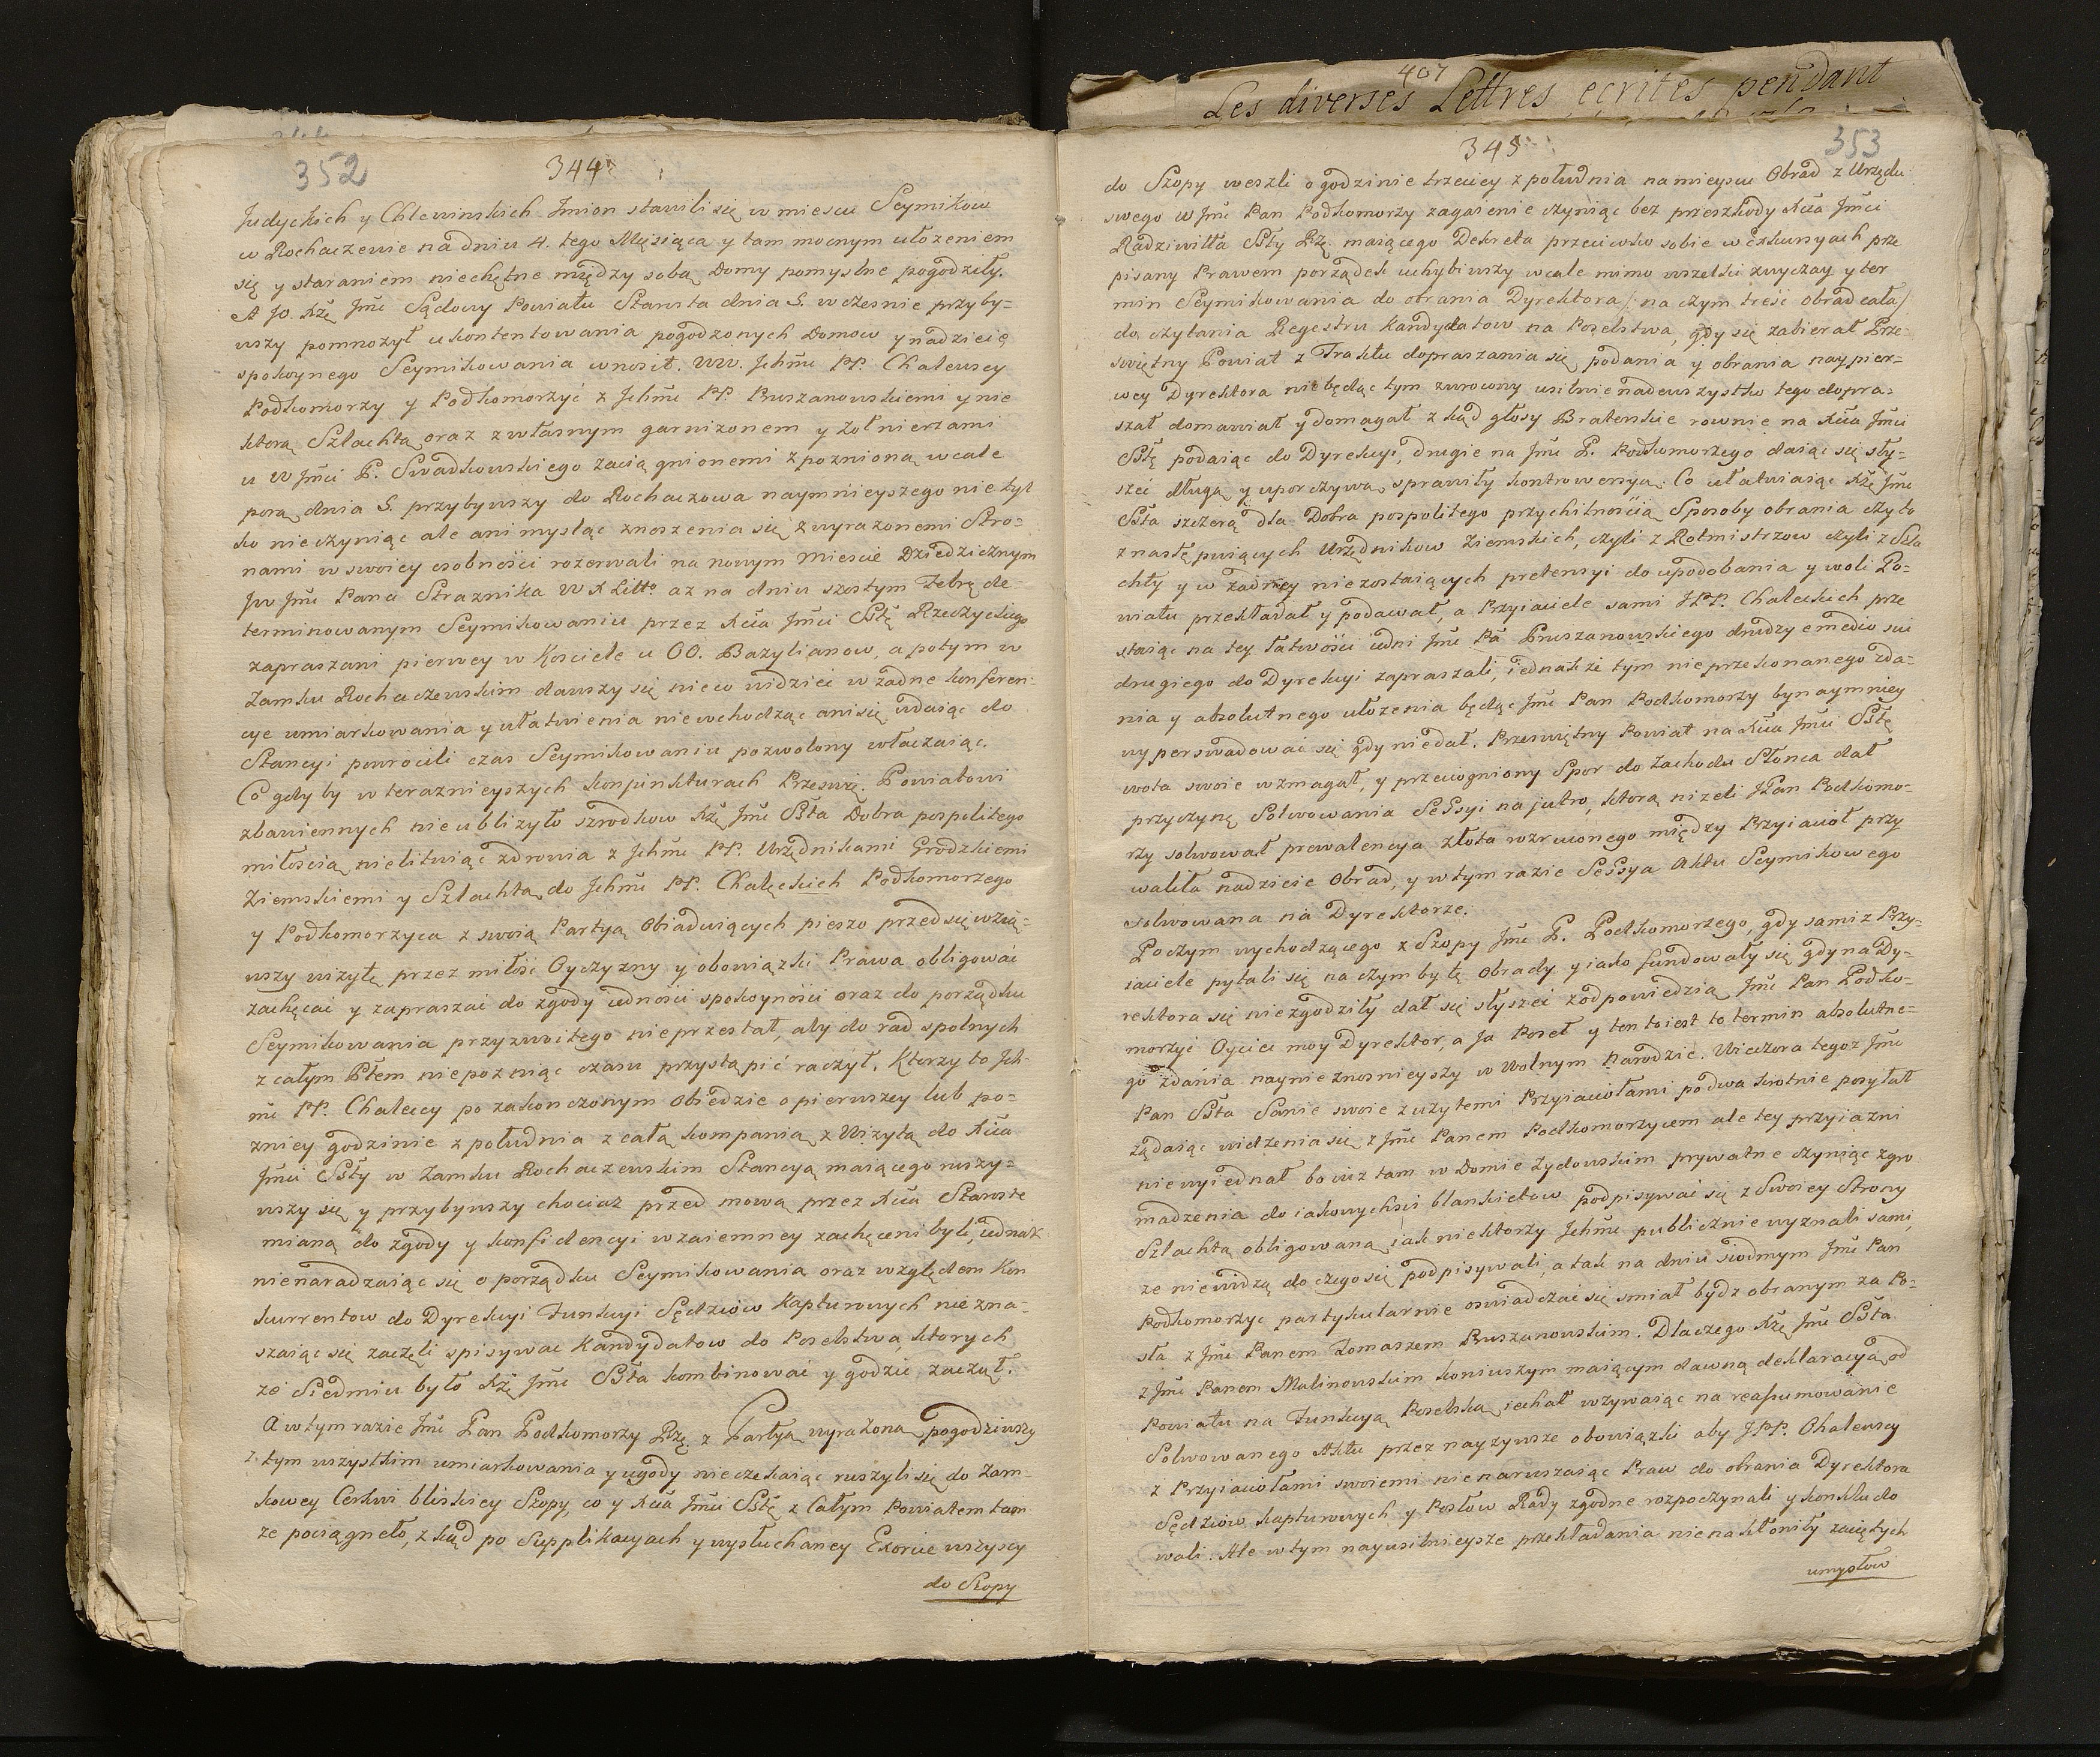 352
344
Judyckich y Chlewinskich Imion stawili się w miescu Seymikow
w Rochaczewie na dniu 4. tego Mięsiąca y tam mocnym ułozeniem
się y staraniem niechętne między sobą Domy pomyslne pogodziły.
A JO. Xżę Jmć Sądowy Powiatu Starosta dnia 5. wczesnie przyby=
wszy pomnozył ukontentowania pogodzonych Domow y nadzieię
spokoynego Seymikowania wnosił. WW. Ichmć PP. Chaleccy
Podkomorzy y Podkomorzyć z Ichmć PP. Pruszanowskiemi y nie
ktorą Szlachtą oraz z własnym garnizonem y żołnierzami
u W Jmci P. Swadkowskiego zaciągnionemi zpoznioną wcale
porą dnia 5. przybywszy do Rochaczowa naymnieyszego nie tyl
ko nie czyniąc ale ani mysląc znoszenia się z wyrazonemi Stro=
nami w swoiey osobności rozerwali na nowym Miescie Dziedzicznym
JW Jmć Pana Straznika W X Litto. az na dniu szostym Febrę de
terminowanym Seymikowaniu przez Xcia Jmci Sstę Rzeczyckiego
zapraszani pierwey w Kosciele u OO. Bazylianow, a potym w
Zamku Rochaczewskim dawszy się nieco widziec w żadne konferen=
cye umiarkowania y ułatwienia niewchodząc ani się udaiąc do
Stancyi powrocili czas Seymikowaniu pozwolony włacząiąc.
Co gdy by w teraznieyszych konjunkturach Przeswię. Powiatowi
zbawiennych nie ubliżyło szrodkow Xżę Jmć Ssta Dobra pospolitego
miłoscią nielituiąc zdrowia z Ichmć PP. Urzędnikami Grodzkiemi
Ziemskiemi y Szlachtą do Ichmć PP. Chaleckich Podkomorzego
y Podkomorzyca z swoią Partyą Obiaduiących pieszo przedsięwzią=
wszy wizytę przez miłość Oyczyzny y obowiązki Prawa obligować
zachęcać y zapraszać do zgody iedności spokoyności oraz do porządku
Seymikowania przyzwoitego nieprzestał, aby do rad spolnych
z całym Ptem niepozniąc czasu przystąpić raczył. Ktorzy to Ich=
mć PP. Chaleccy po zakonczonym Obiedzie o pierwszey lub po=
zniey godzinie z południa z całą kompanią z Wizytą do Xcia
Jmci Ssty w Zamku Rochaczewskim Stancyą maiącego ruszy=
wszy się y przybywszy chociaz przed mową przez Xcia Staroste
mianą do zgody y konfidencyi wzaiemney zachęceni byli, iednak
nienaradzaiąc się o porządku Seymikowania oraz względem Kon
kurrentow do Dyrekcyi Funkcyi Sędziow Kapturowych nie zna=
szaiąc się zaczęli spisywac Kandydatow do Poselstwa, ktorych
że Siedmiu było Xżę Jmć Ssta kombinować y godzić zaczął.
A w tym razie Jmć Pan Podkomorzy Rzę. z Partyą wyrażoną pogodziwszy
z tym wszystkim umiarkowania y ugody nieczekaiąc ruszyli się do Zam=
kowey Cerkwi bliskiey Szopy, co y Xcia Jmci Sstę z Całym Powiatem tam
że pociągneło, z kąd po Supplikacyach y wysłuchaney Exorcie wszyscy
do Szopy
407
Les diverses Lettres ecrites pendant
345
353
do Szopy weszli o godzinie trzeciey z południa na mieyscu Obrad z Urzędu
swego W Jmć Pan Podkomorzy zagaienie czyniąc bez przeszkody Xcia Jmci
Radziwiłła Ssty Rzę. maiącego Dekreta przeciwko sobie w exkursyach prze
pisany Prawem porządek uchybiwszy wcale mimo wszelki zwyczay y ter
min Seymikowania do obrania Dyrektora/: na czym treść obrad cała/
do czytania Regestru Kandydatow na Poselstwa, gdy się zabierał Prze=
swiętny Powiat z Traktu dopraszania się podania y obrania naypier=
wey Dyrektora niebędąc tym zwrocony usilnie nadewszystko tego dopra=
szał domawiał y domagał z kąd głosy Braterskie rownie na Xcia Jmci
Sstę podaiąc do Dyrekcyi, drugie na Jmć P. Podkomorzego daiąc się sły=
szeć długą y uporczywą sprawiły kontrowersyą. Co ułatwiaiąc Xżę Jmć
Ssta szczerą dla Dobra pospolitego przychilnością Sposoby obrania czyto
z nastę puiących Urzędnikow Ziemskich, czyli z Rotmistrzow czyli z Szla
chty y w żadney niezostaiących pretensyi do upodobania y woli Po=
wiatu przekładał y podawał, a Przyiaciele sami JPP. Chaleckich prze
staiąc na tey łatwości iedni Jmć Pa Pruszanowskiego drudzy e medio sui
drugiego do Dyrekcyi zapraszali, iednakże tym nieprzekonanego zda=
nia y absolutnego ułozenia będąc Jmć Pan Podkomorzy bynaymniey
wyperswadować się gdy niedał. Przeswiętny Powiat na Xcia Jmci Sstę
wota swoie wzmagał, y przeciogniony Spor do Zachodu Słonca dał
przyczynę Solwowania Sessyi na jutro, ktorą nizeli JPan Podkomo=
rzy solwował prewalencya złota rozrzuconego między Przyiacioł przy
waliła nadzieie Obrad, y w tym razie Sessya Aktu Seymikowego
solwowana na Dyrektorze.
Poczym wychodzącego z Szopy Jmć P. Podkomorzego, gdy sami z Przy=
iaciele pytali się na czym były Obrady y iako fundowały się gdy na Dy=
rektora się niezgodziły dał się słyszeć zodpowiedzią Jmć Pan Podko=
morzyć Oyciec moy Dyrektor, a Ja Poseł y ten to iest to termin absolutne=
go zdania nayniezwosnieyszy w Wolnym Narodzie. Wieczora tegoz Jmć
Pan Ssta Sanie swoie z użytemi Przyiaciołami podwa krotnie posyłał
żądaiąc widzenia się z Jmć Panem Podkomorzycem ale tey przyiazni
niewyiednał bo iuż tam w Domie żydowskim prywatne czyniąc zgro
madzenia do iakowychści blankietow podpisywać się z Swoiey Strony
Szlachtą obligowaną iak niektorzy Ichmć publicznie wyznali sami,
że niewidzą do czego się podpisywali, a tak na dniu siodmym Jmć Pan
Podkomorzyc partykularnie oswiadczać się smiał bydz obranym za Po=
sła z Jmć Panem Tomaszem Pruszanowskim. Dlaczego Xżę Jmć Ssta
z Jmć Panem Malinowskim koniuszym maiącym dawną deklaracyą od
Powiatu na Funkcyą Poselską iechał wzywaiąc na reassumowanie
Solwowanego Aktu przez nayzywsze obowiązki aby JPP. Chaleccy
z Przyiaciołami swoiemi nienaruszaiąc Praw do obrania Dyrektora
Sędziow kapturowych y Posłow Rady zgodne rozpoczynali y konkludo
wali. Ale w tym nayusilnieysze przekładania nienakłoniły zaciętych
umysłow